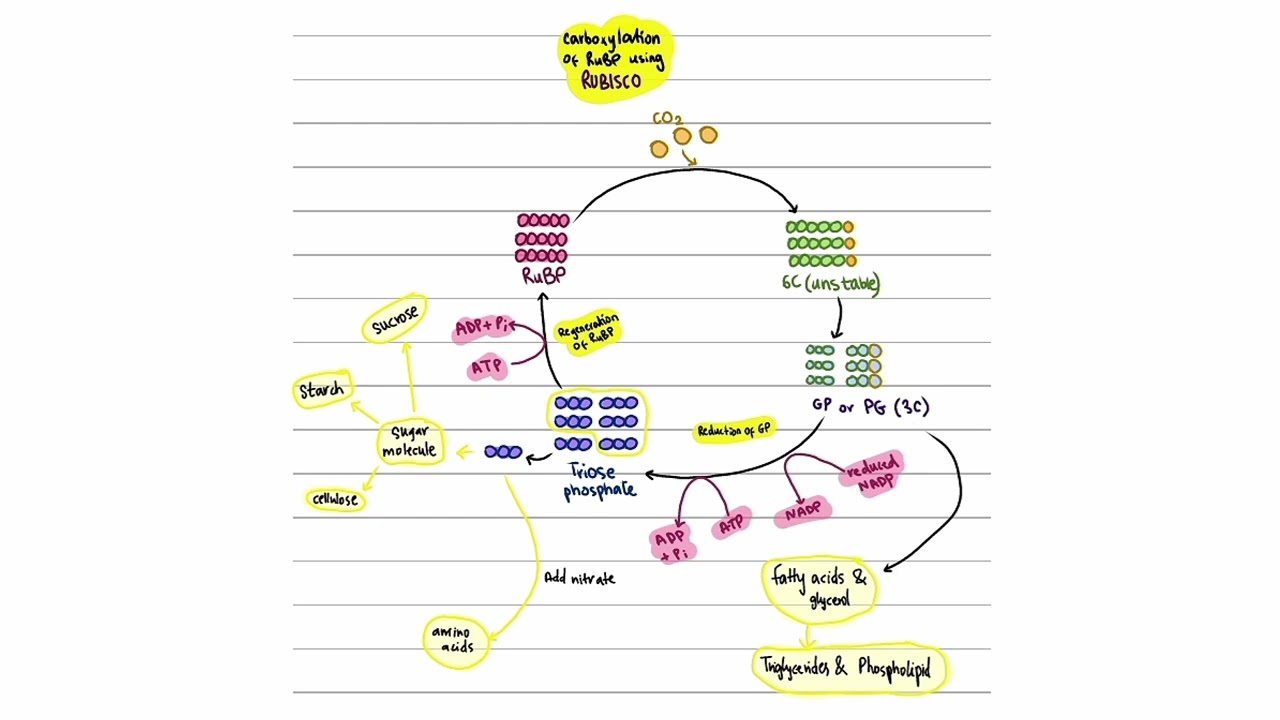 carboxylation
of RuBP using
RUBISCO
CO₂
RuBP
6C (unstable)
Sucrose
ADP + Pi
ATP
Regeneration
of RuBP
Starch
GP or PG (3C)
Sugar
molecule
Reduction of GP
Triose
phosphate
reduced
NADP
NADP
cellulose
ADP
+ Pi
ATP
Add nitrate
fatty acids &
glycerol
amino
acids
Triglycerides & Phospholipid